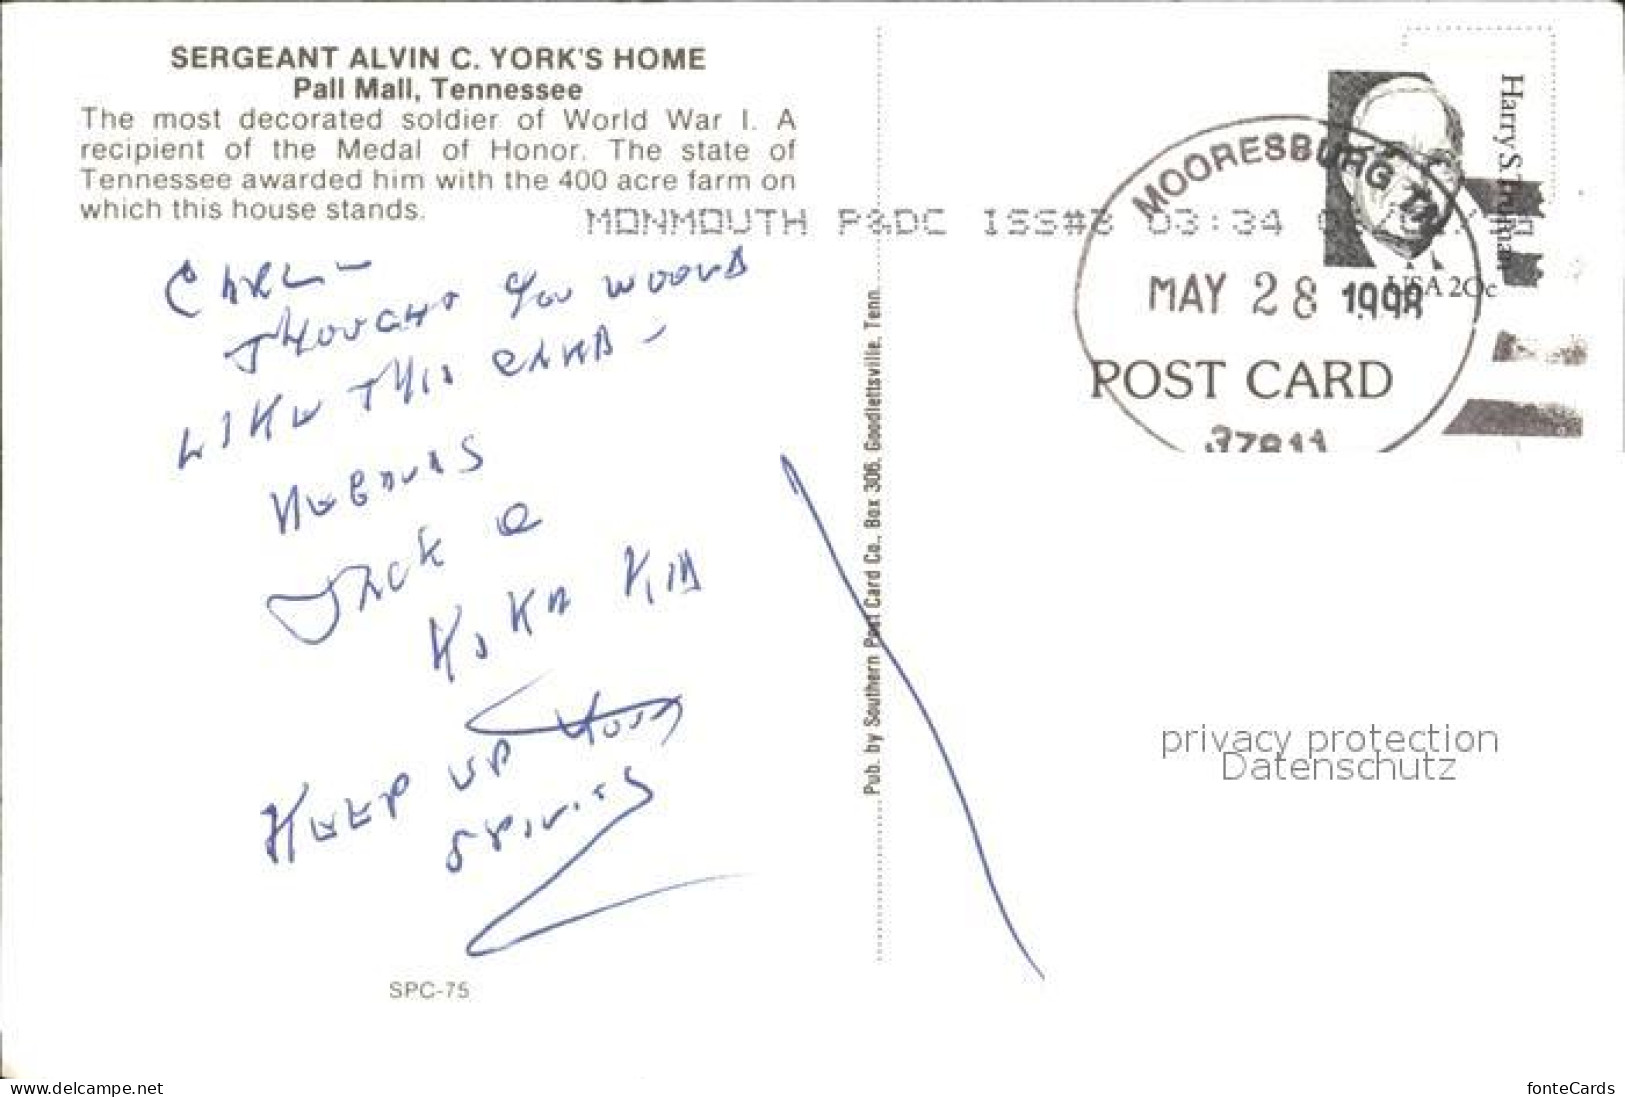 SERGEANT ALVIN C. YORK'S HOME
Pall Mall, Tennessee
The most decorated soldier of World War I. A
recipient of the Medal of Honor. The state of
Tennessee awarded him with the 400 acre farm on
which this house stands.
MONMOUTH P&DC ISS#3 03:34
CARL -
THOUGHT YOU WOULD
LIKE THIS CARD -
REGARDS
JACK
KEEP UP YOUR
SPIRITS
SPC-75
Pub. by Southern Post Card Co., Box 306, Goodlettsville, Tenn.
Harry S. Truman
USA 20c
MOORESBURG TN
MAY 28 1998
37811
POST CARD
privacy protection
Datenschutz
www.delcampe.net
fonteCards